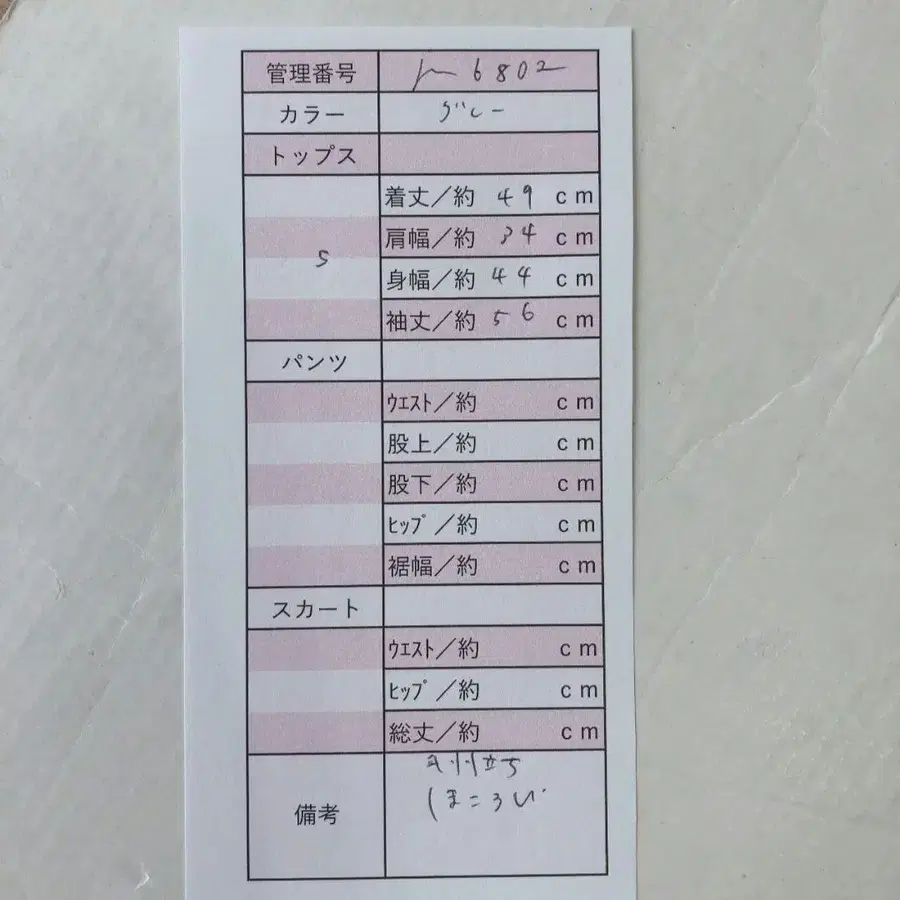 管理番号 6802
カラー グレー
トップス
着丈／約 49 cm
肩幅／約 34 cm
S
身幅／約 44 cm
袖丈／約 56 cm
パンツ
ｳｴｽﾄ／約 cm
股上／約 cm
股下／約 cm
ﾋｯﾌﾟ／約 cm
裾幅／約 cm
スカート
ｳｴｽﾄ／約 cm
ﾋｯﾌﾟ／約 cm
総丈／約 cm
備考
立ち
ほころび